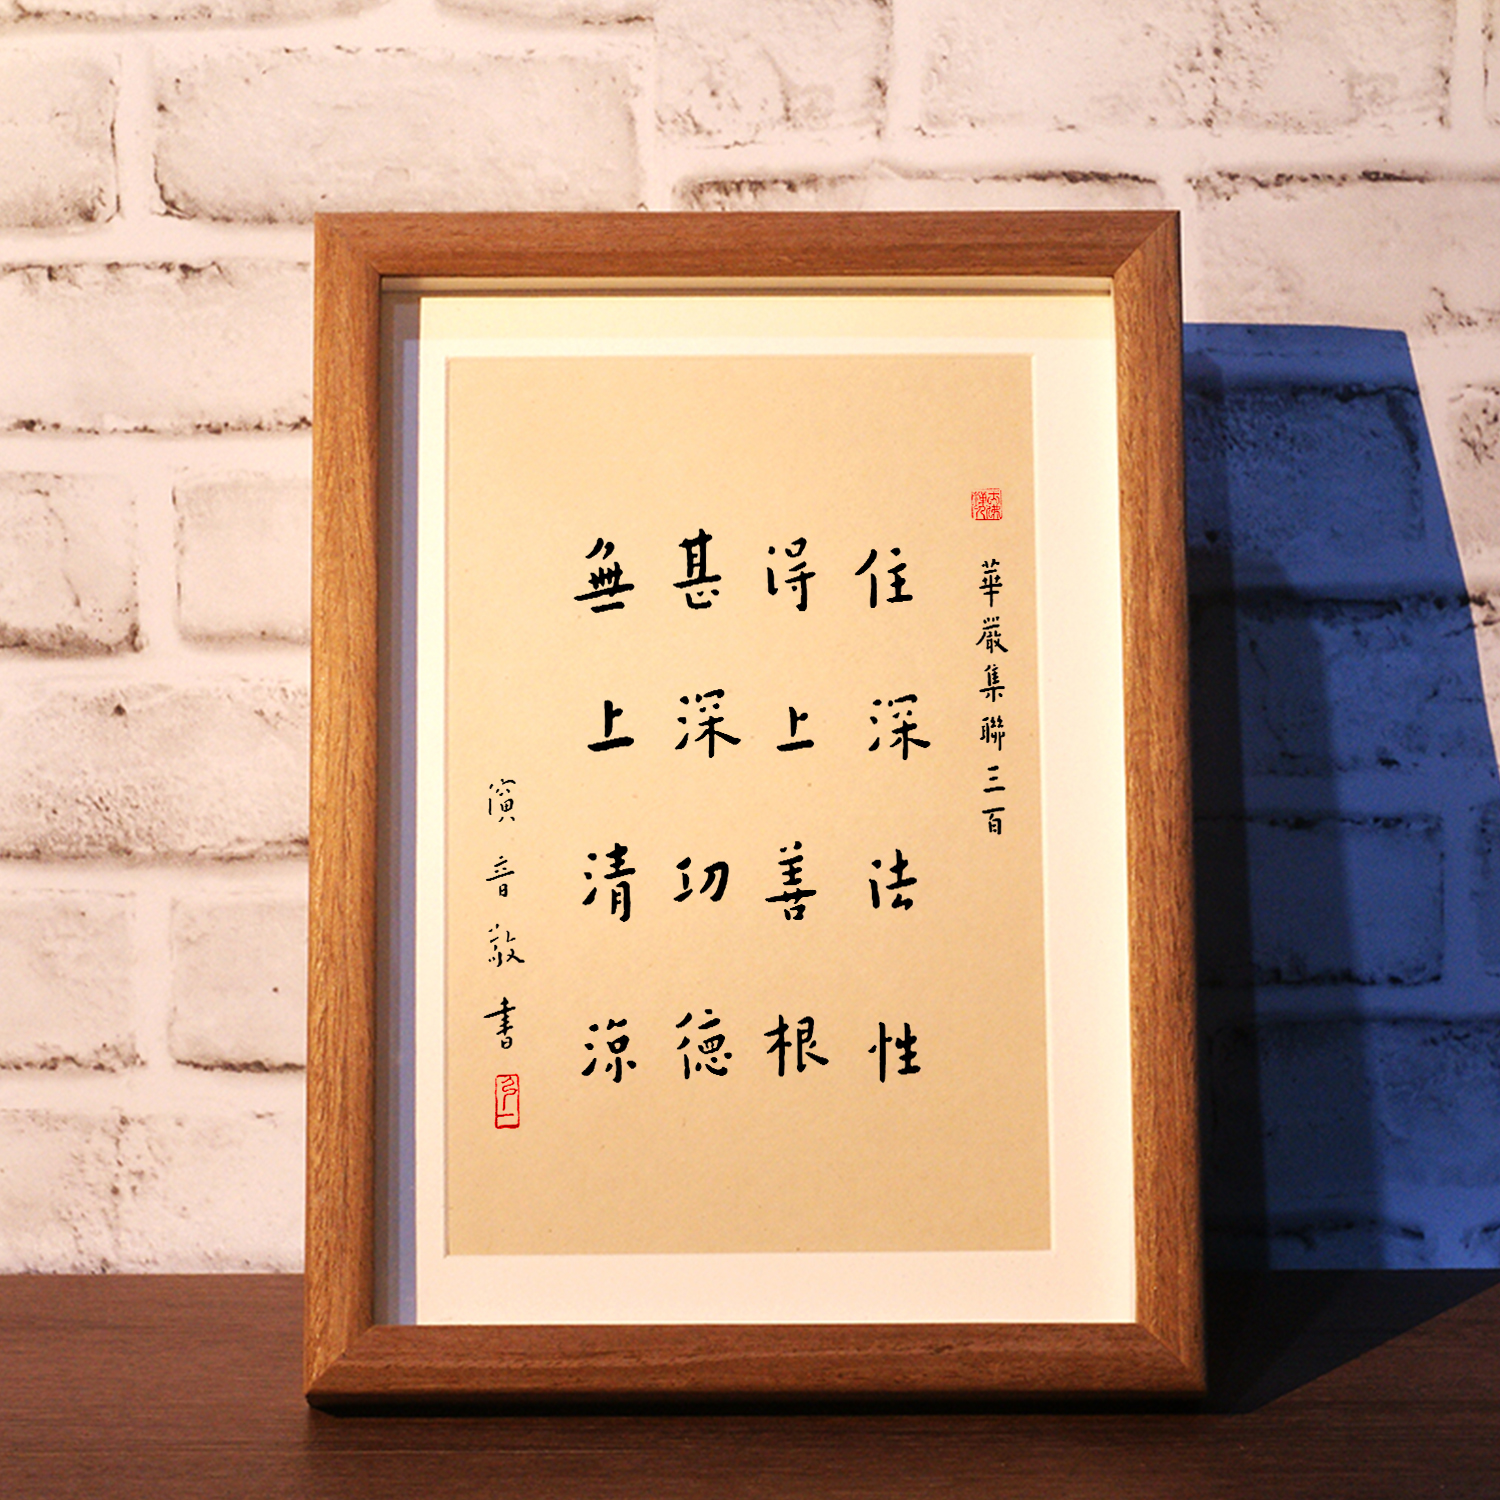 華嚴集聯三百
住深法性
得上善根
甚深功德
無上清涼
演音敬書
弘一